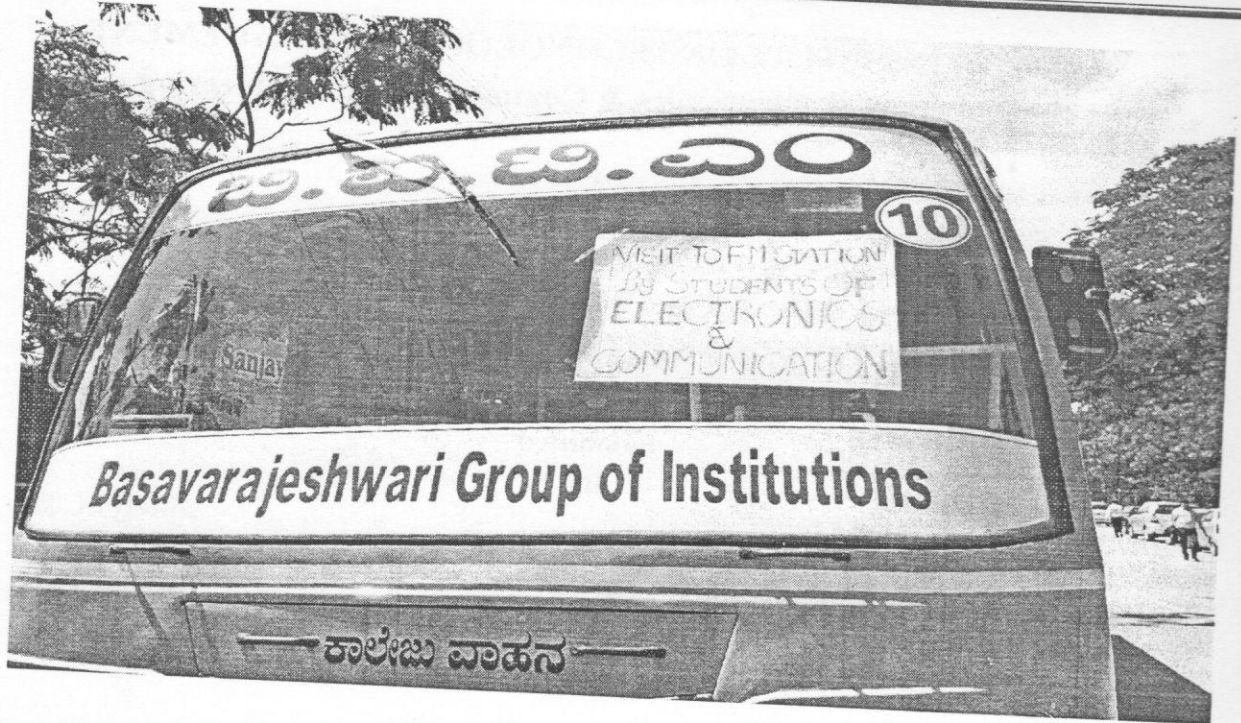 ಬಿ.ಐ.ಟಿ.ಎಂ
10
VISIT TO FM STATION
By STUDENTS OF
ELECTRONICS
&
COMMUNICATION
Sanjay
Basavarajeshwari Group of Institutions
ಕಾಲೇಜು ವಾಹನ